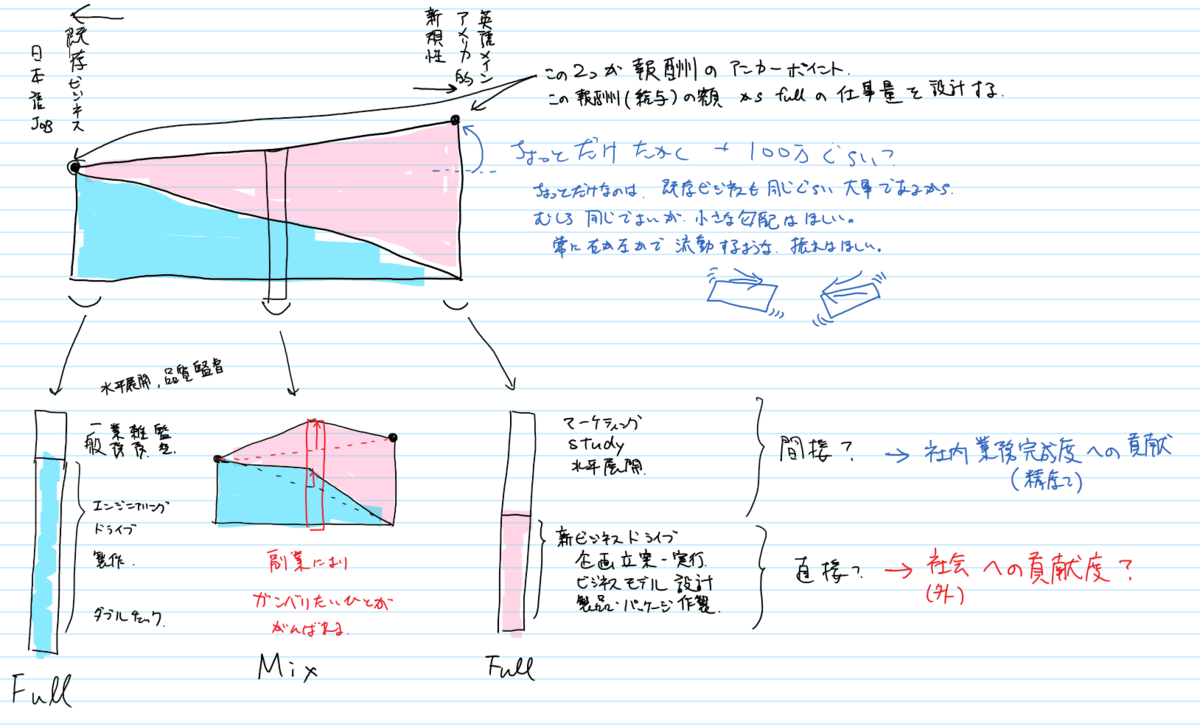 既存ビジネス
日本産JOB
英語メイン
アメリカ的
新規性
この2つが報酬のアンカーポイント.
この報酬(給与)の額 から fullの仕事量を設計する.
ちょっとだけ たかく → 100万ぐらい?
ちょっとだけなのは、既存ビジネスも同じぐらい大事であるから.
むしろ同じでよいが、小さな勾配はほしい。
常に右か左かで流動するような、振れはほしい。
水平展開,品質監督
一般業務
エンジニアリング
ドライブ
製作.
ダブルチェック.
Full
副業により
ガンバりたいひとが
がんばれる.
Mix
マーケティング
study
水平展開.
新ビジネスドライブ
企画立案-実行.
ビジネスモデル設計
製品・パッケージ作製.
Full
間接? → 社内業務完成度への貢献
(精度で)
直接? → 社会への貢献度?
(外)